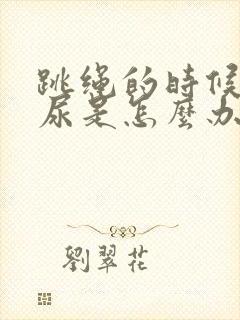 跳绳的時候
尿是怎麼办
劉翠花